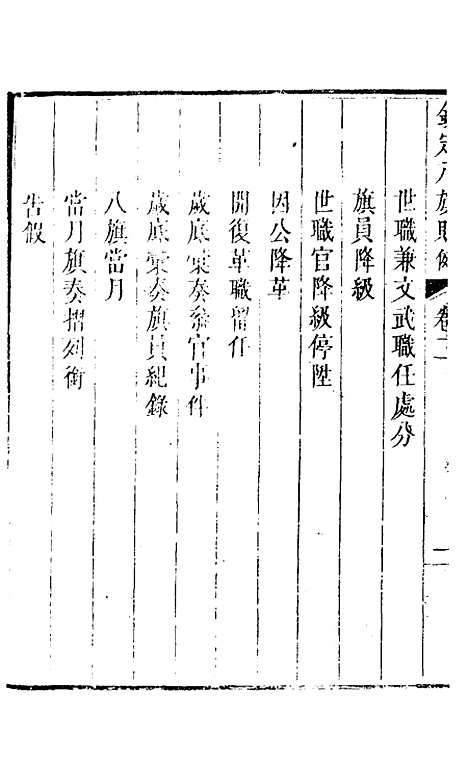 欽定八旗則例 卷二 二
世職兼文武職任處分
旗員降級
世職官降級停陞
因公降革
開復革職留任
歲底彙奏叅官事件
歲底彙奏旗員紀錄
八旗當月
當月旗奏摺列銜
告假